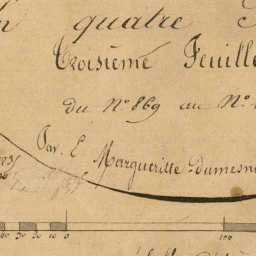 quatre
Troisième Feuille
du N° 869 au N°
Par E. Margueritte Dumesn
0 100